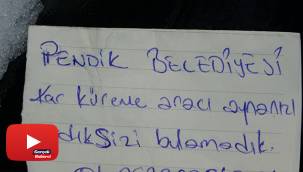 PENDİK BELEDİYESİ
Kar küreme aracı aynanızı
sizi bulamadık.
Gerçek
Haberci